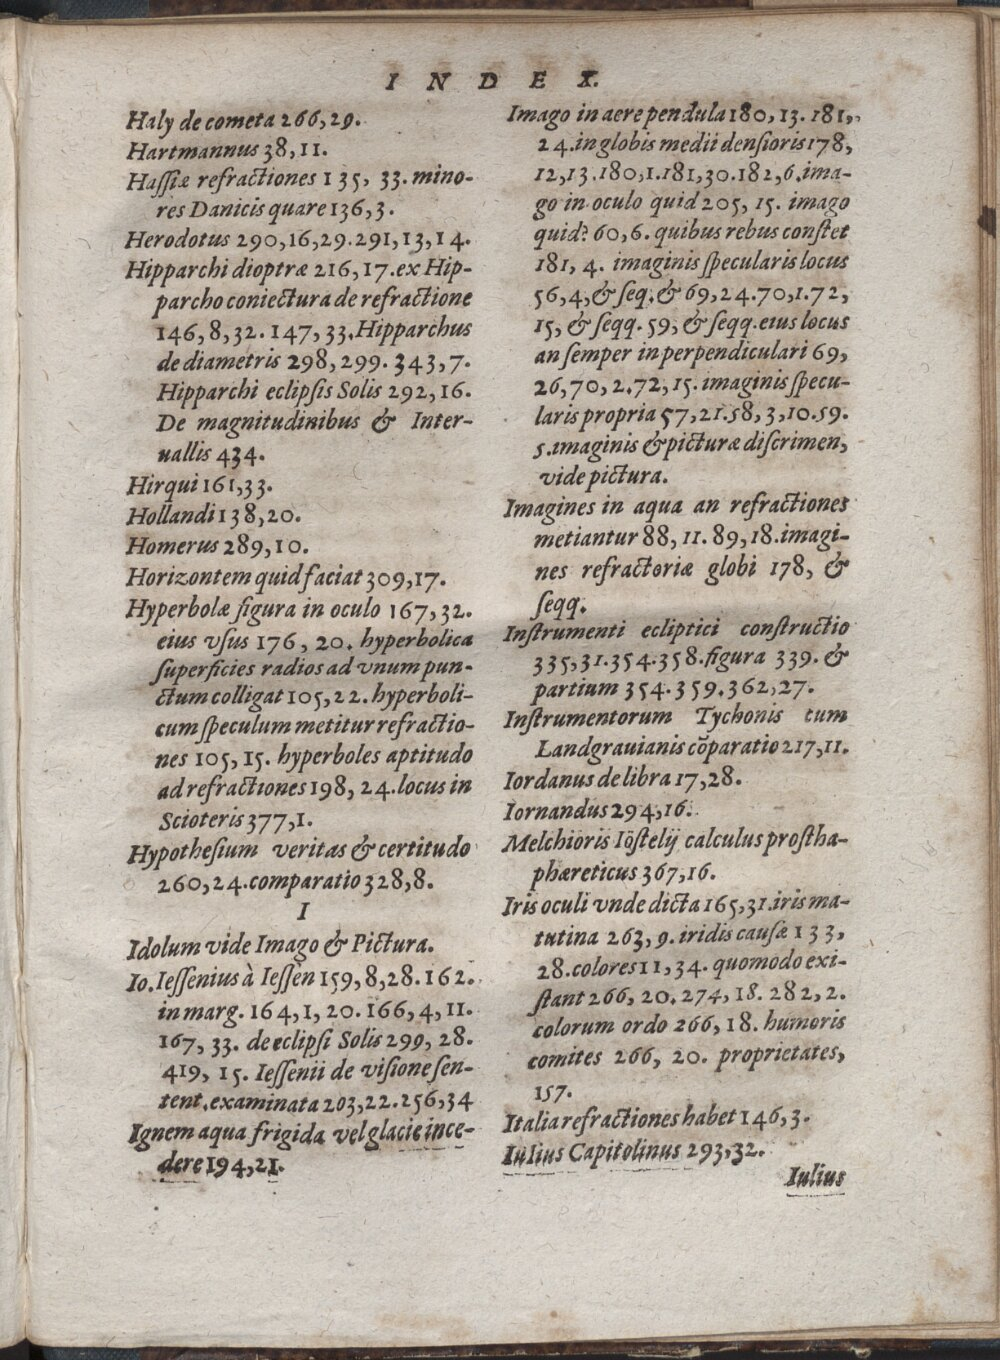 INDEX.
Haly de cometa 266, 29.
Hartmannus 38, 11.
Haſſiæ refractiones 135, 33. mino-
res Danicis quare 136, 3.
Herodotus 290, 16, 29. 291, 13, 14.
Hipparchi dioptræ 216, 17. ex Hip-
parcho coniectura de refractione
146, 8, 32. 147, 33. Hipparchus
de diametris 298, 299. 343, 7.
Hipparchi eclipſis Solis 292, 16.
De magnitudinibus & Inter-
uallis 434.
Hirqui 161, 33.
Hollandi 138, 20.
Homerus 289, 10.
Horizontem quid faciat 309, 17.
Hyperbolæ figura in oculo 167, 32.
eius vſus 176, 20. hyperbolica
ſuperficies radios ad vnum pun-
ctum colligat 105, 22. hyperboli-
cum ſpeculum metitur refractio-
nes 105, 15. hyperboles aptitudo
ad refractiones 198, 24. locus in
Scioteris 377, 1.
Hypotheſium veritas & certitudo
260, 24. comparatio 328, 8.
I
Idolum vide Imago & Pictura.
Io. Ieſſenius à Ieſſen 159, 8, 28. 162.
in marg. 164, 1, 20. 166, 4, 11.
167, 33. de eclipſi Solis 299, 28.
419, 15. Ieſſenii de viſione ſen-
tent. examinata 203, 22. 256, 34
Ignem aqua frigida vel glacie ince-
dere 194, 21.
Imago in aere pendula 180, 13. 181,
24. in globis medii denſioris 178,
12, 13. 180, 1. 181, 30. 182, 6. ima-
go in oculo quid 205, 15. imago
quid? 60, 6. quibus rebus conſtet
181, 4. imaginis ſpecularis locus
56, 4, & ſeq. & 69, 24. 70, 1. 72,
15, & ſeqq. 59, & ſeqq. eius locus
an ſemper in perpendiculari 69,
26, 70, 2. 72, 15. imaginis ſpecu-
laris propria 57, 21. 58, 3, 10. 59.
5. imaginis & picturæ diſcrimen,
vide pictura.
Imagines in aqua an refractiones
metiantur 88, 11. 89, 18. imagi-
nes refractoriæ globi 178, &
ſeqq.
Inſtrumenti ecliptici conſtructio
335, 31. 354. 358. figura 339. &
partium 354. 359. 362, 27.
Inſtrumentorum Tychonis cum
Landgrauianis cōparatio 217, 11.
Iordanus de libra 17, 28.
Iornandus 294, 16.
Melchioris Iöſtelij calculus proſtha-
phæreticus 367, 16.
Iris oculi vnde dicta 165, 31. iris ma-
tutina 263, 9. iridis cauſæ 133,
28. colores 11, 34. quomodo exi-
ſtant 266, 20. 274, 18. 282, 2.
colorum ordo 266, 18. humoris
comites 266, 20. proprietates,
157.
Italia refractiones habet 146, 3.
Iulius Capitolinus 293, 32.
Iulius